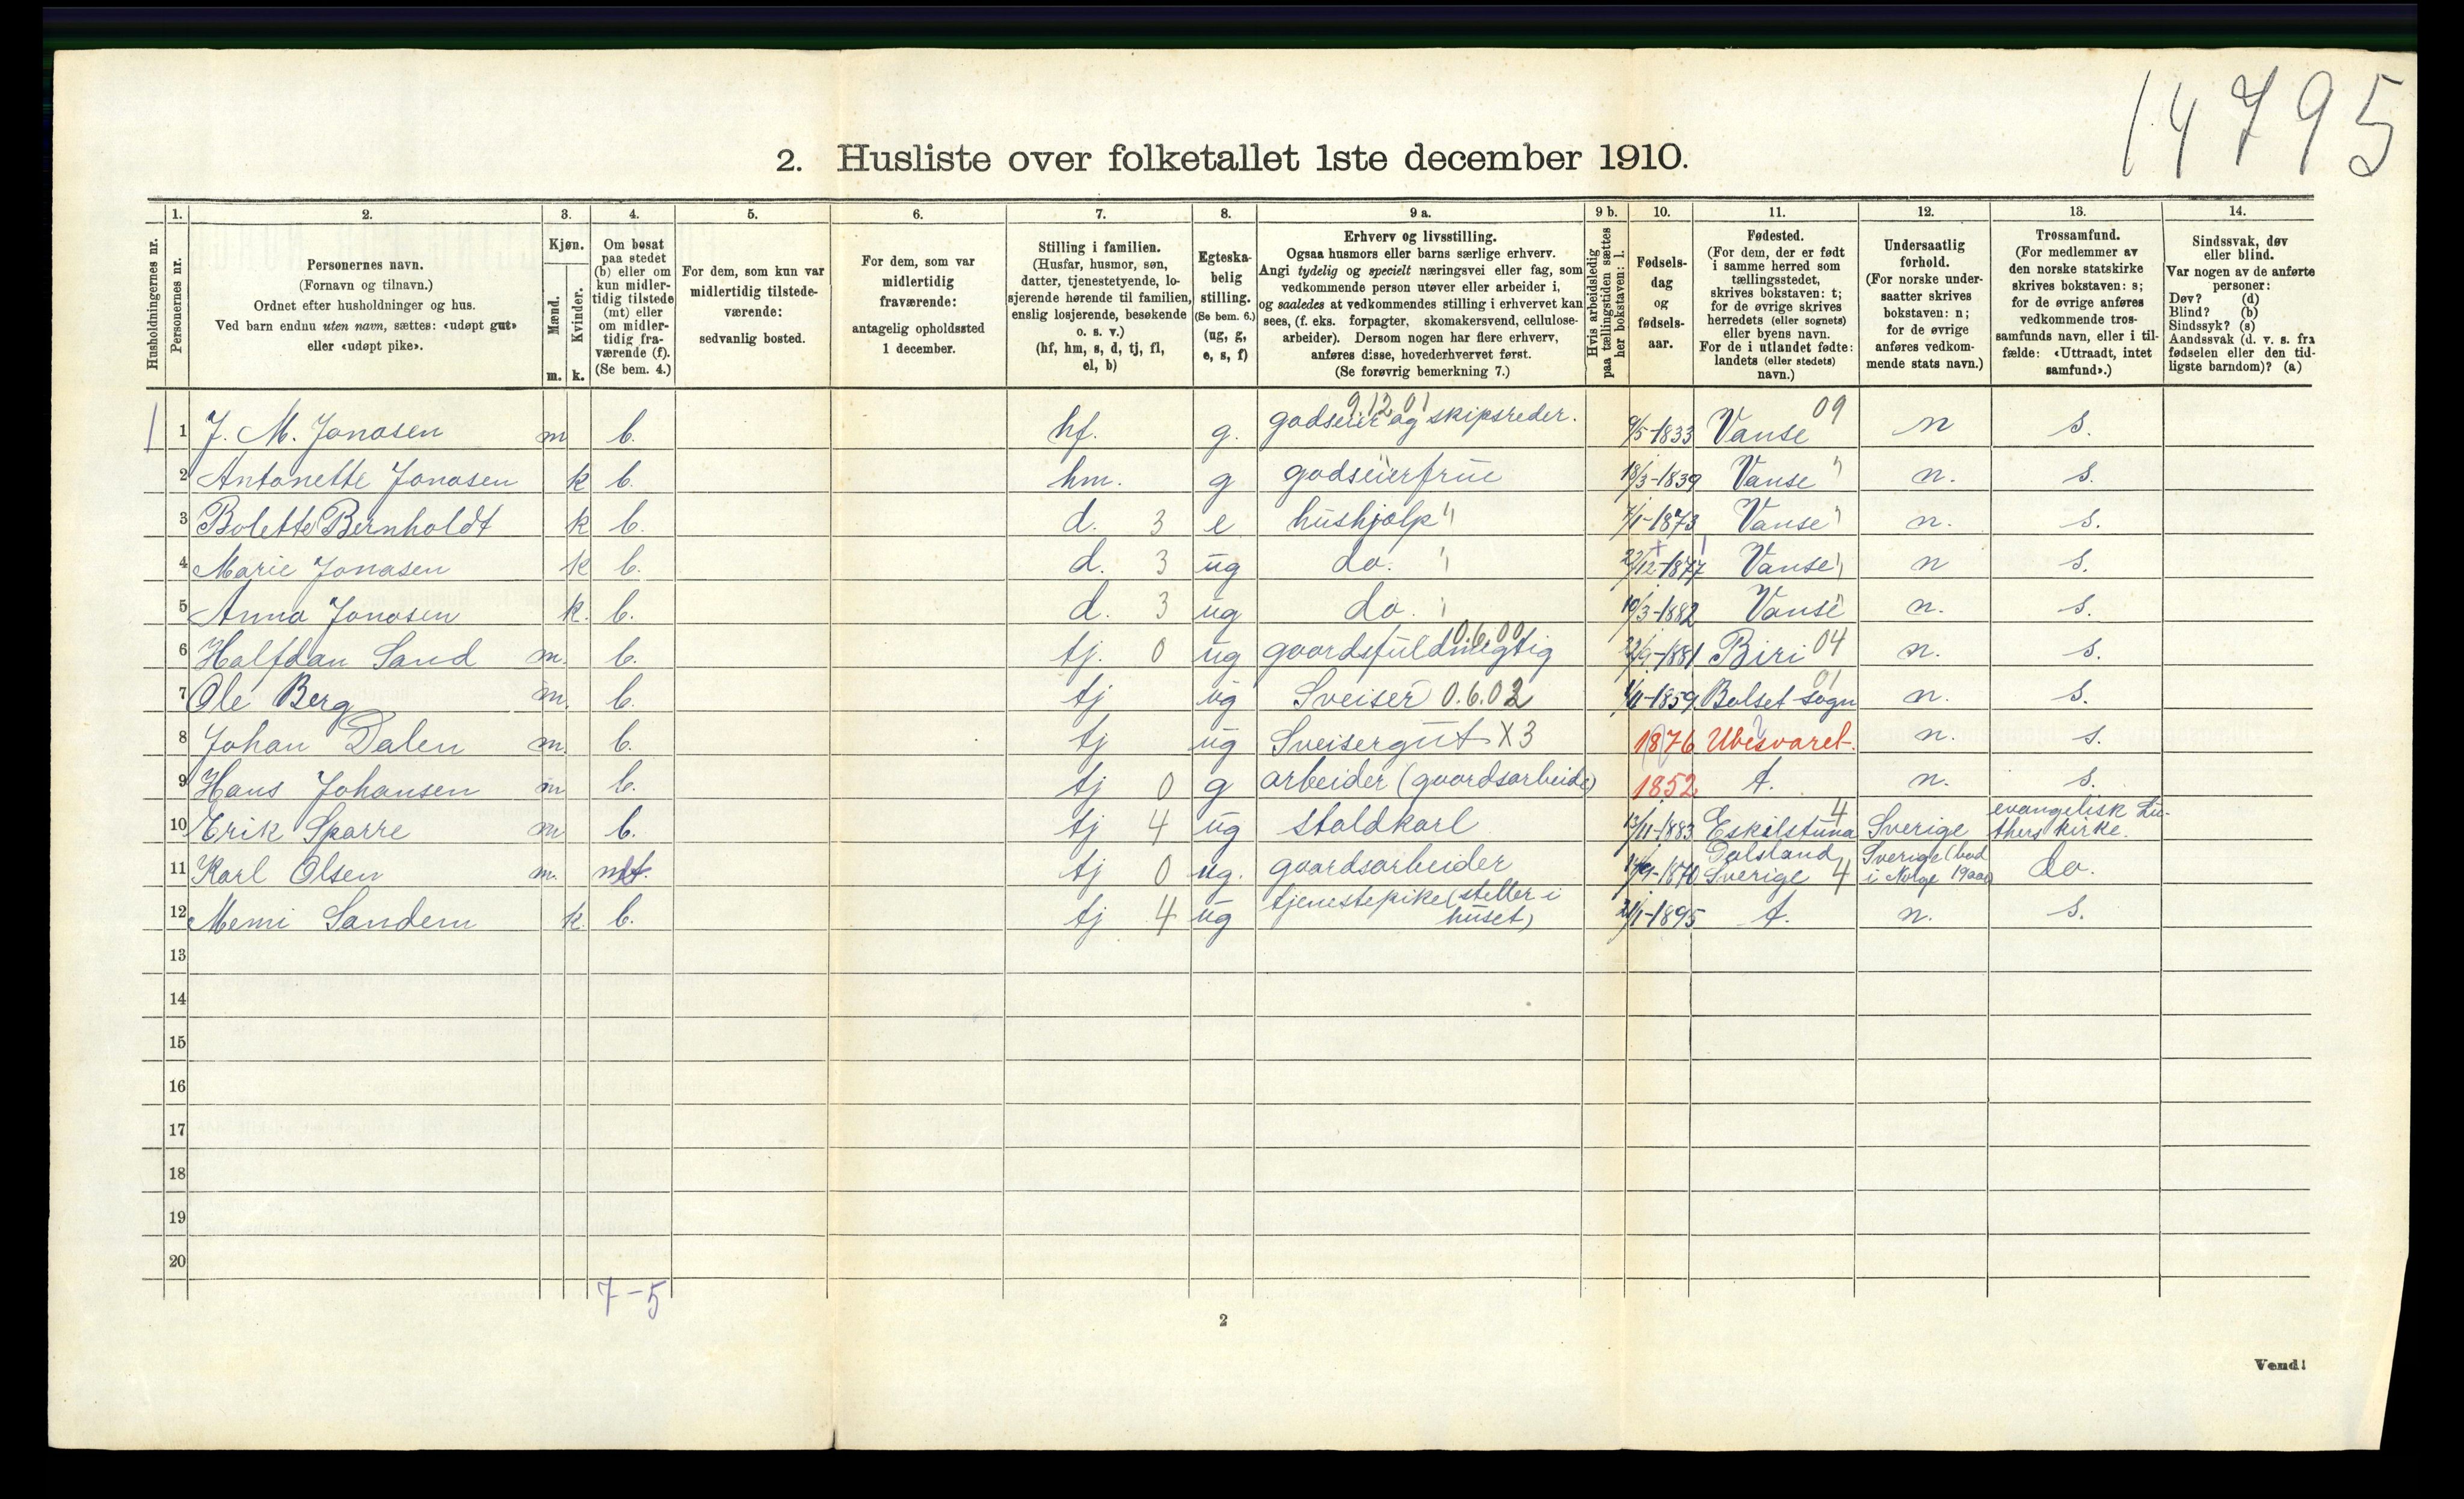 14795
2. Husliste over folketallet 1ste december 1910.
Husholdningernes nr.
1.
Personernes nr.
2.
Personernes navn.
(Fornavn og tilnavn.)
Ordnet efter husholdninger og hus.
Ved barn endnu uten navn, sættes: «udøpt gut»
eller «udøpt pike».
3.
Kjøn.
Mænd.
Kvinder.
m. k.
4.
Om bosat
paa stedet
(b) eller om
kun midler-
tidig tilstede
(mt) eller
om midler-
tidig fra-
værende (f).
(Se bem. 4.)
5.
For dem, som kun var
midlertidig tilstede-
værende:
sedvanlig bosted.
6.
For dem, som var
midlertidig
fraværende:
antagelig opholdssted
1 december.
7.
Stilling i familien.
(Husfar, husmor, søn,
datter, tjenestetyende, lo-
sjerende hørende til familien,
enslig losjerende, besøkende
o. s. v.)
(hf, hm, s, d, tj, fl,
el, b)
8.
Egteska-
belig
stilling.
(Se bem. 6.)
(ug, g,
e, s, f)
9 a.
Erhverv og livsstilling.
Ogsaa husmors eller barns særlige erhverv.
Angi tydelig og specielt næringsvei eller fag, som
vedkommende person utøver eller arbeider i,
og saaledes at vedkommendes stilling i erhvervet kan
sees, (f. eks. forpagter, skomakersvend, cellulose-
arbeider). Dersom nogen har flere erhverv,
anføres disse, hovederhvervet først.
(Se forøvrig bemerkning 7.)
9 b.
Hvis arbeidsledig
paa tællingstiden sættes
her bokstaven: l.
10.
Fødsels-
dag
og
fødsels-
aar.
11.
Fødested.
(For dem, der er født
i samme herred som
tællingsstedet,
skrives bokstaven: t;
for de øvrige skrives
herredets (eller sognets)
eller byens navn.
For de i utlandet fødte:
landets (eller stedets)
navn.)
12.
Undersaatlig
forhold.
(For norske under-
saatter skrives
bokstaven: n;
for de øvrige
anføres vedkom-
mende stats navn.)
13.
Trossamfund.
(For medlemmer av
den norske statskirke
skrives bokstaven: s;
for de øvrige anføres
vedkommende tros-
samfunds navn, eller i til-
fælde: «Uttraadt, intet
samfund».)
14.
Sindssvak, døv
eller blind.
Var nogen av de anførte
personer:
Døv? (d)
Blind? (b)
Sindssyk? (s)
Aandssvak (d. v. s. fra
fødselen eller den tid-
ligste barndom)? (a)
9.12 01 09
1 1 J. M. Jonasen m b. hf. g. godseier og skipsreder. 9/5-1833 Vanse n s.
2 Antonette Jonasen k b. hm. g godseierfrue 18/3-1839 Vanse " n. s.
3 Bolette Bernholdt k b. d. 3 e hushjælp " 7/1-1873 Vanse " n. s.
4 Marie Jonasen k b. d. 3 ug do. " 22/12-1877 Vanse " n s.
5 Anna Jonasen k. b. d. 3 ug do. " 10/3-1882 Vanse " n. s.
0.6.00
6 Halfdan Sand m. b. tj. 0 ug gaardsfuldmegtig 22/9-1881 Biri 04 n. s.
01
7 Ole Berg m. b. tj ug Sveiser 0.6.02 1/11-1859 Bolset sogn n. s.
8 Johan Dalen m. b. tj ug Sveisergut X3 1876 Ubesvaret. n. s.
9 Hans Johansen m b. tj 0 g arbeider (gaardsarbeide) 1852 t. n. s.
10 Erik Sparre m b. tj 4 ug staldkarl 13/11-1883 Eskilstuna 4 Sverige evangelisk Lu-
thers kirke.
11 Karl Olsen m. mt. tj 0 ug. gaardsarbeider 14/9-1870 Dalsland
Sverige 4 Sverige (bod
i Norge 19 aar) do.
12 Memi Sandem k. b. tj 4 ug tjenestepike (steller i
huset) 21/1-1895 t. n. s.
13
14
15
16
17
18
19
20
7-5
2
Vend!